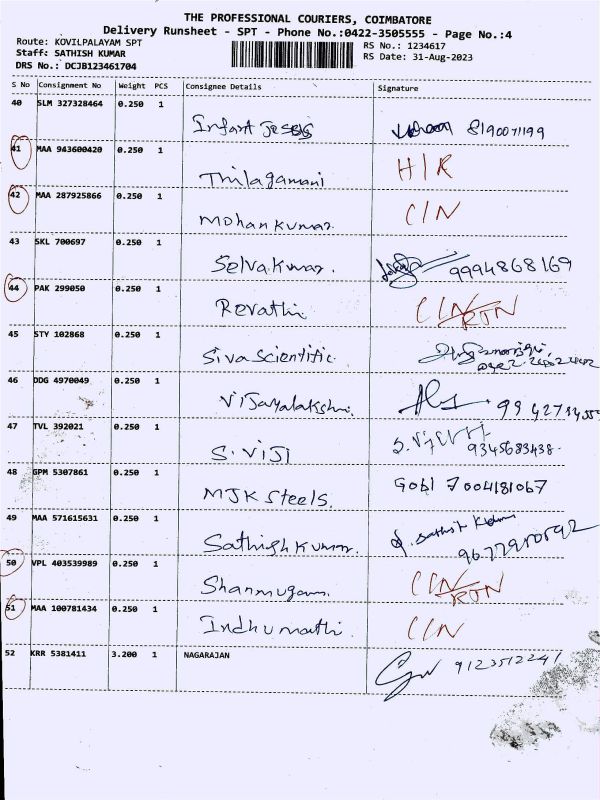 THE PROFESSIONAL COURIERS, COIMBATORE
Delivery Runsheet - SPT - Phone No.:0422-3505555 - Page No.:4
Route: KOVILPALAYAM SPT
Staff: SATHISH KUMAR
DRS No.: DCJB123461704
RS No.: 1234617
RS Date: 31-Aug-2023
S No Consignment No Weight PCS Consignee Details Signature
40 SLM 327328464 0.250 1 Infant Jesus 8190071199
41 MAA 943600420 0.250 1 Thilagamani H/R
42 MAA 287925866 0.250 1 Mohan Kumar. C/N
43 SKL 700697 0.250 1 Selva Kumar. 9994868169
44 PAK 299050 0.250 1 Revathi C/N/RTN
45 STY 102868 0.250 1 Siva Scientific
46 DDG 4970049 0.250 1 Vijayalakshmi.
47 TVL 392021 0.250 1 S. VIJI 9345683438.
48 GPM 5307861 0.250 1 MJK Steels. Gobi 7004181067
49 MAA 571615631 0.250 1 Sathish Kumar.
50 VPL 403539989 0.250 1 Shanmugam. C/N/RTN
51 MAA 100781434 0.250 1 Indhumathi. C/N
52 KRR 5381411 3.200 1 NAGARAJAN 9123512241